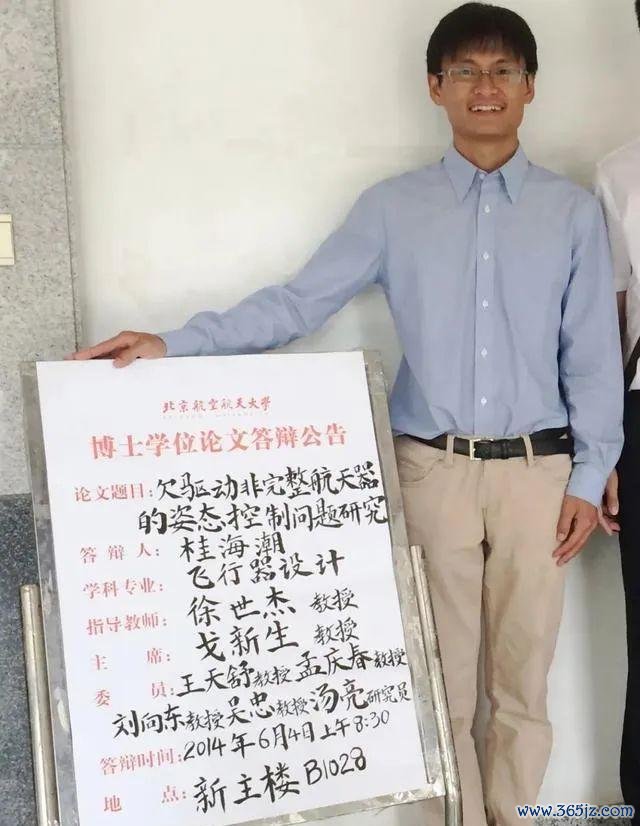 北京航空航天大学
博士学位论文答辩公告
论文题目：欠驱动非完整航天器
的姿态控制问题研究
答辩人：桂海潮
学科专业：飞行器设计
指导教师：徐世杰 教授
主席：戈新生 教授
委员：王天舒教授 孟庆春教授
刘向东教授 吴忠教授 汤亮研究员
答辩时间：2014年6月4日上午8:30
地点：新主楼B1028
www.365jz.com